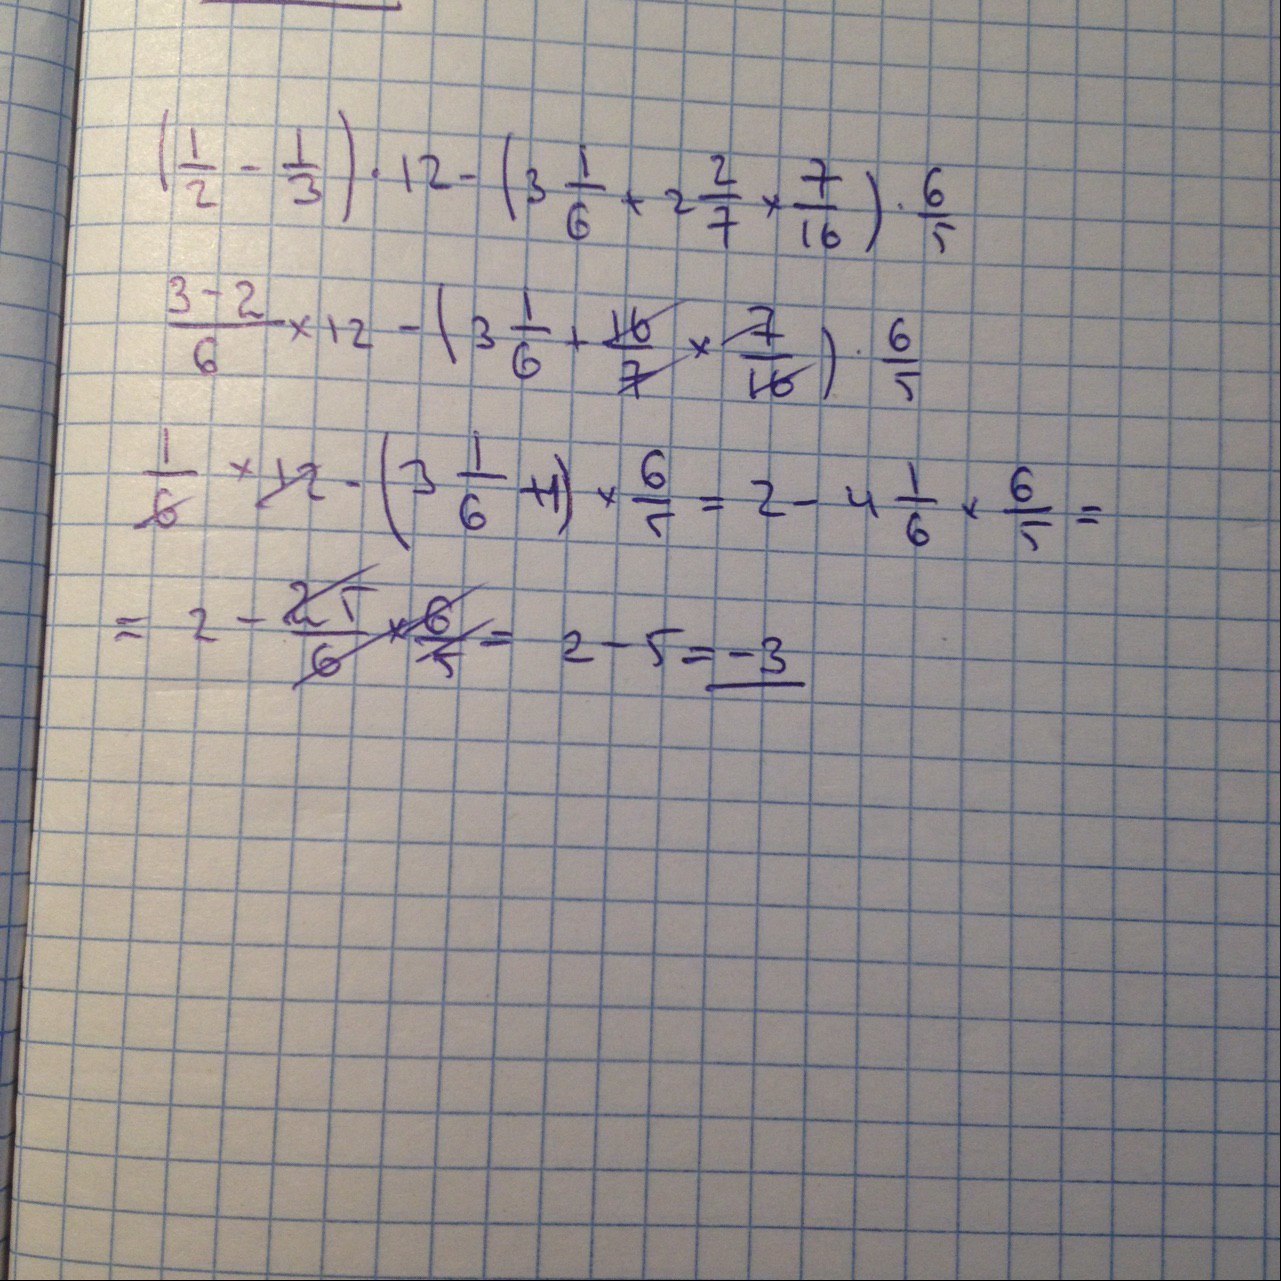 (1/2 - 1/3) · 12 - (3 1/6 + 2 2/7 × 7/16) · 6/5
3-2/6 × 12 - (3 1/6 + 16/7 × 7/16) · 6/5
1/6 × 12 - (3 1/6 + 1) × 6/5 = 2 - 4 1/6 × 6/5 =
= 2 - 25/6 × 6/5 = 2 - 5 = -3